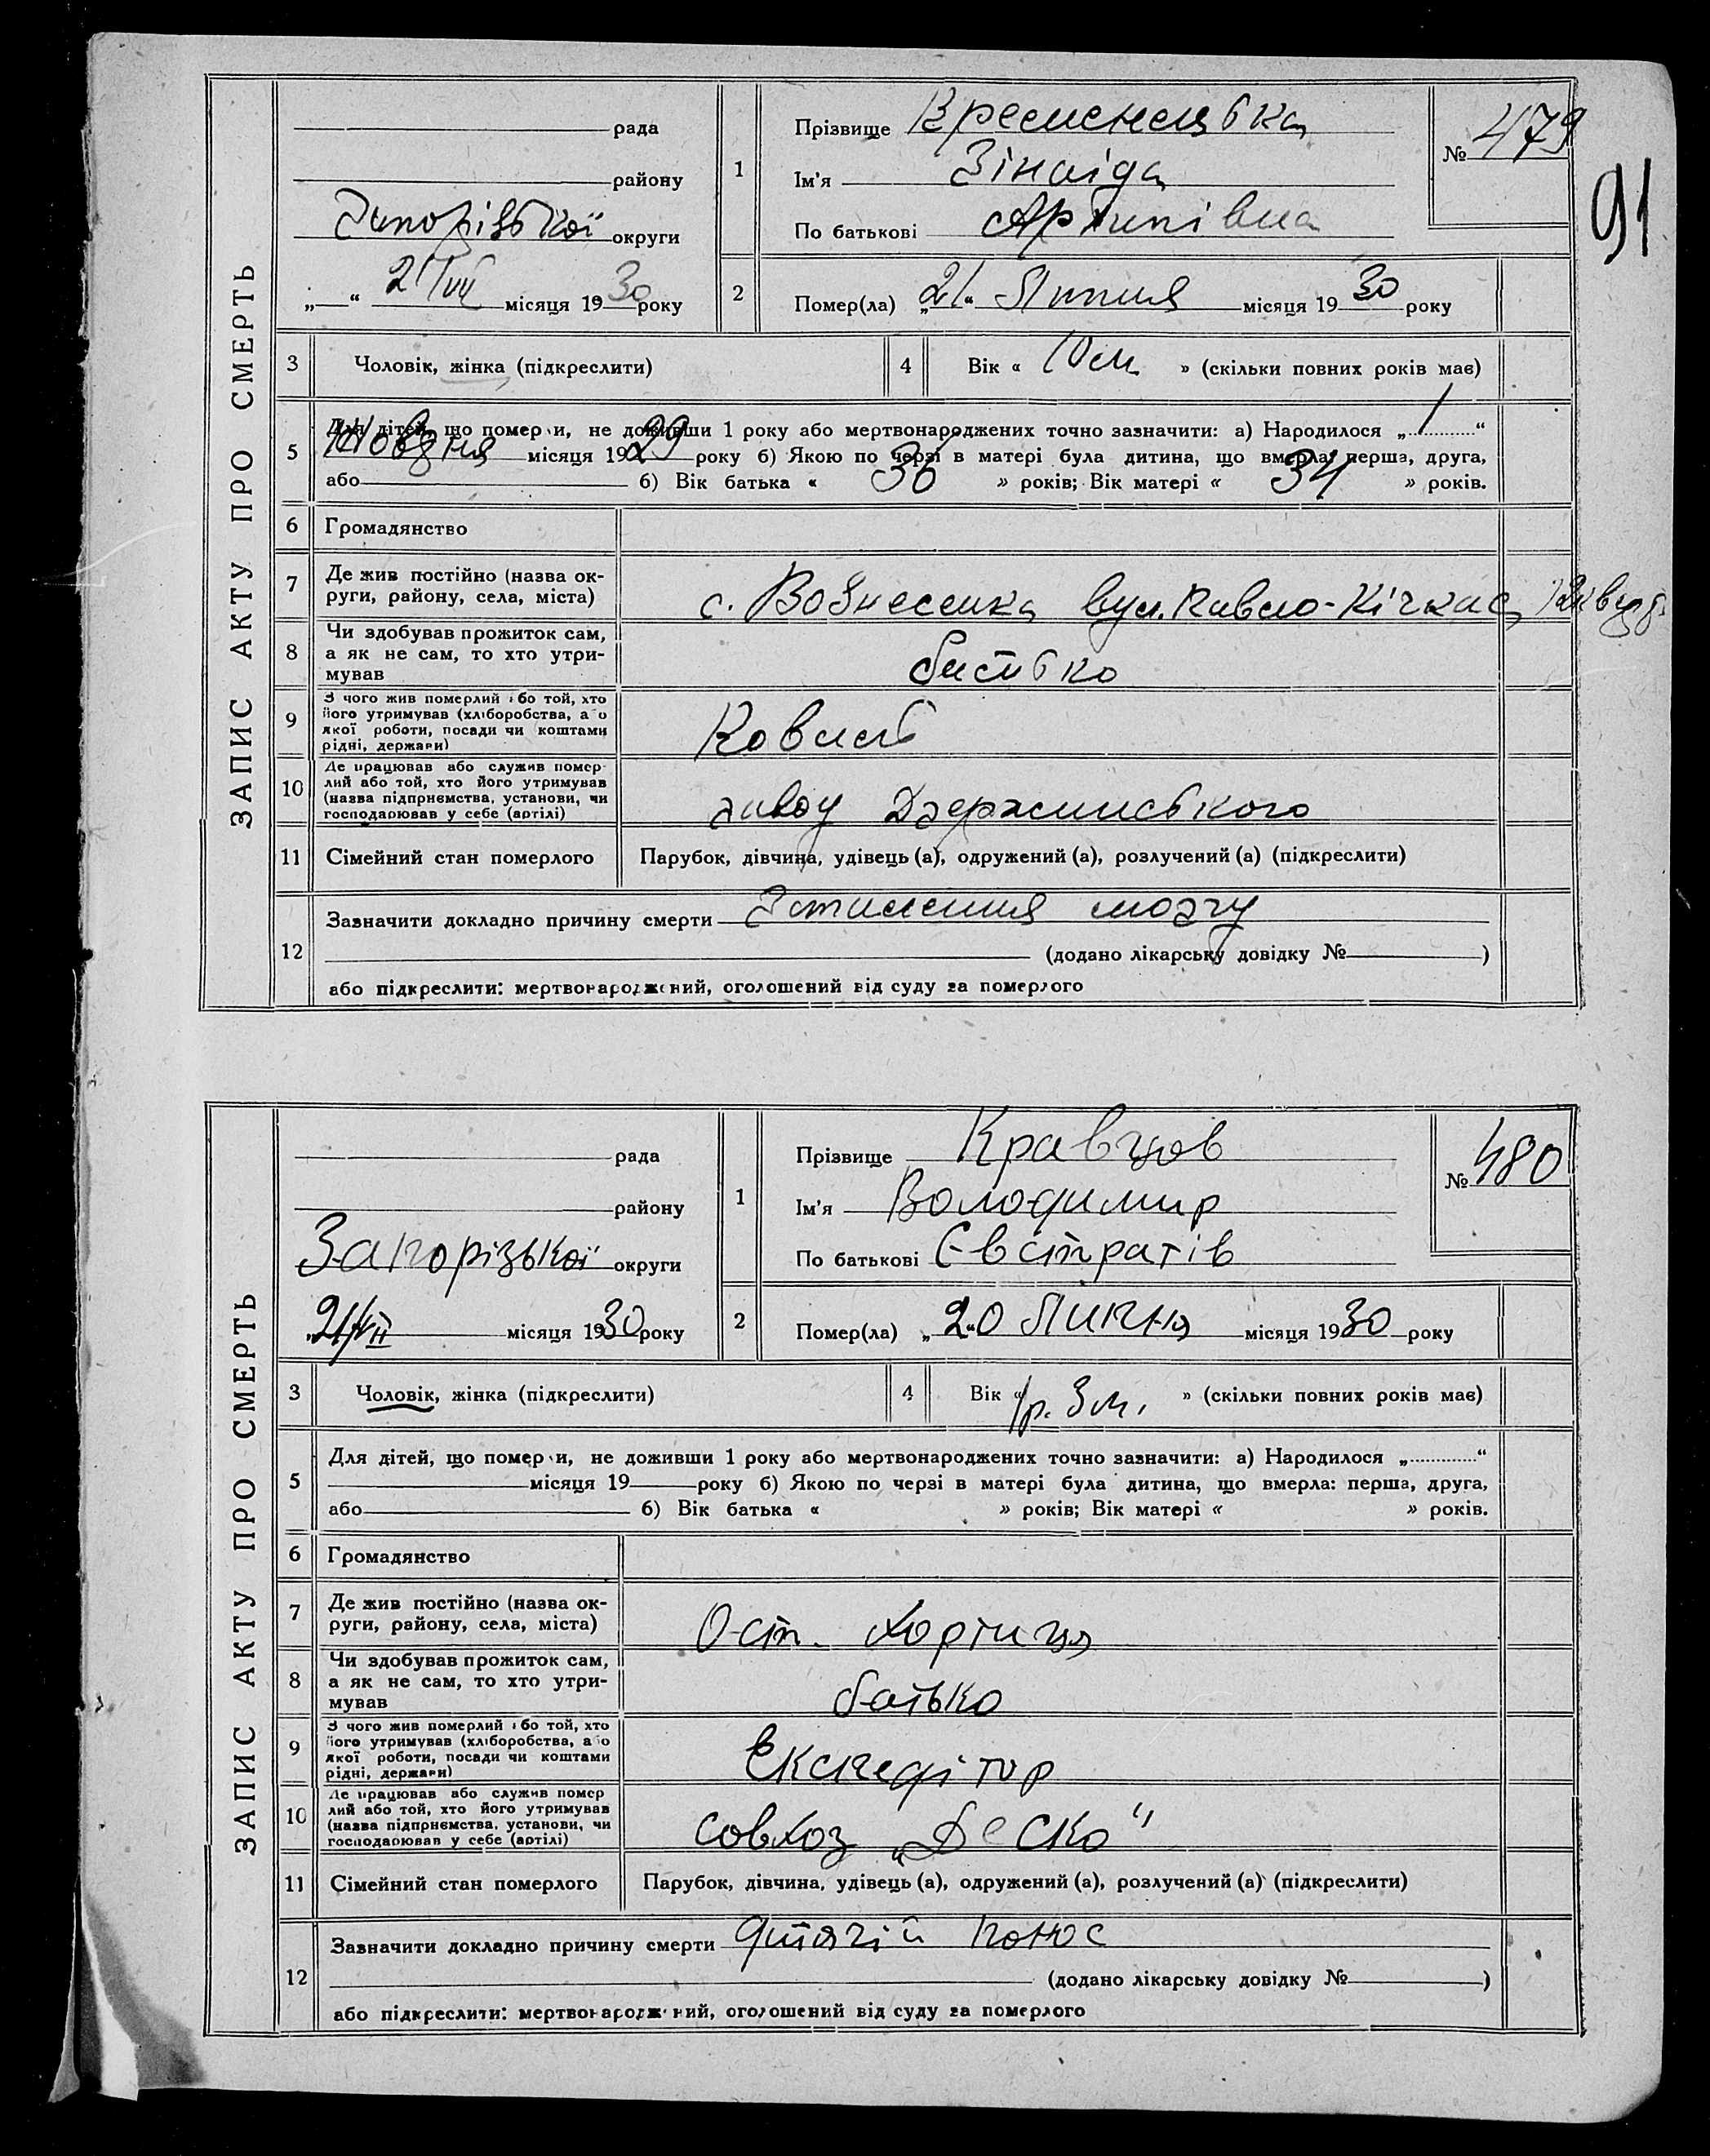 91
ЗАПИС АКТУ ПРО СМЕРТЬ
рада
району
Запорізької округи
„ “ 21/VII місяця 1930 року
1
Прізвище Кременецька
Ім'я Зінаіда
По батькові Архипівна
№ 479
2
Помер(ла) „21“ Липня місяця 1930 року
3 Чоловік, жінка (підкреслити)
4 Вік « 10 м. » (скільки повних років має)
5 Для дітей, що померли, не доживши 1 року або мертвонароджених точно зазначити: а) Народилося „1“
Жовдня місяця 1929 року б) Якою по черзі в матері була дитина, що вмерла: перша, друга,
або б) Вік батька « 36 » років; Вік матері « 34 » років.
6 Громадянство
7 Де жив постійно (назва округи, району, села, міста) с. Вознесенка вул. Павло-Кічкас,
8 Чи здобував прожиток сам, а як не сам, то хто утримував батько
9 З чого жив померлий або той, хто його утримував (хліборобства, або якої роботи, посади чи коштами рідні, держави) Коваль
10 Де працював або служив померлий або той, хто його утримував (назва підприємства, установи, чи господарював у себе (артілі) завод Дзержинського
11 Сімейний стан померлого Парубок, дівчина, удівець (а), одружений (а), розлучений (а) (підкреслити)
12 Зазначити докладно причину смерти Запалення мозгу
(додано лікарську довідку № )
або підкреслити: мертвонароджений, оголошений від суду за померлого
ЗАПИС АКТУ ПРО СМЕРТЬ
рада
району
Запорізької округи
„21/VII місяця 1930 року
1
Прізвище Кравцов
Ім'я Володимир
По батькові Євстратів
№ 480
2
Помер(ла) „20 Липня місяця 1930 року
3 Чоловік, жінка (підкреслити)
4 Вік « 1р. 3 м. » (скільки повних років має)
5 Для дітей, що померли, не доживши 1 року або мертвонароджених точно зазначити: а) Народилося „ “
місяця 19 року б) Якою по черзі в матері була дитина, що вмерла: перша, друга,
або б) Вік батька « » років; Вік матері « » років.
6 Громадянство
7 Де жив постійно (назва округи, району, села, міста) Ост. Хортиця
8 Чи здобував прожиток сам, а як не сам, то хто утримував батько
9 З чого жив померлий або той, хто його утримував (хліборобства, або якої роботи, посади чи коштами рідні, держави) Експедітор
10 Де працював або служив померлий або той, хто його утримував (назва підприємства, установи, чи господарював у себе (артілі) Совхоз „Деско“
11 Сімейний стан померлого Парубок, дівчина, удівець (а), одружений (а), розлучений (а) (підкреслити)
12 Зазначити докладно причину смерти дитячій понос
(додано лікарську довідку № )
або підкреслити: мертвонароджений, оголошений від суду за померлого